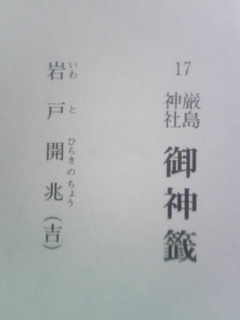 17
厳島神社
御神籤
岩戸開兆(吉)
いわとひらきのちょう